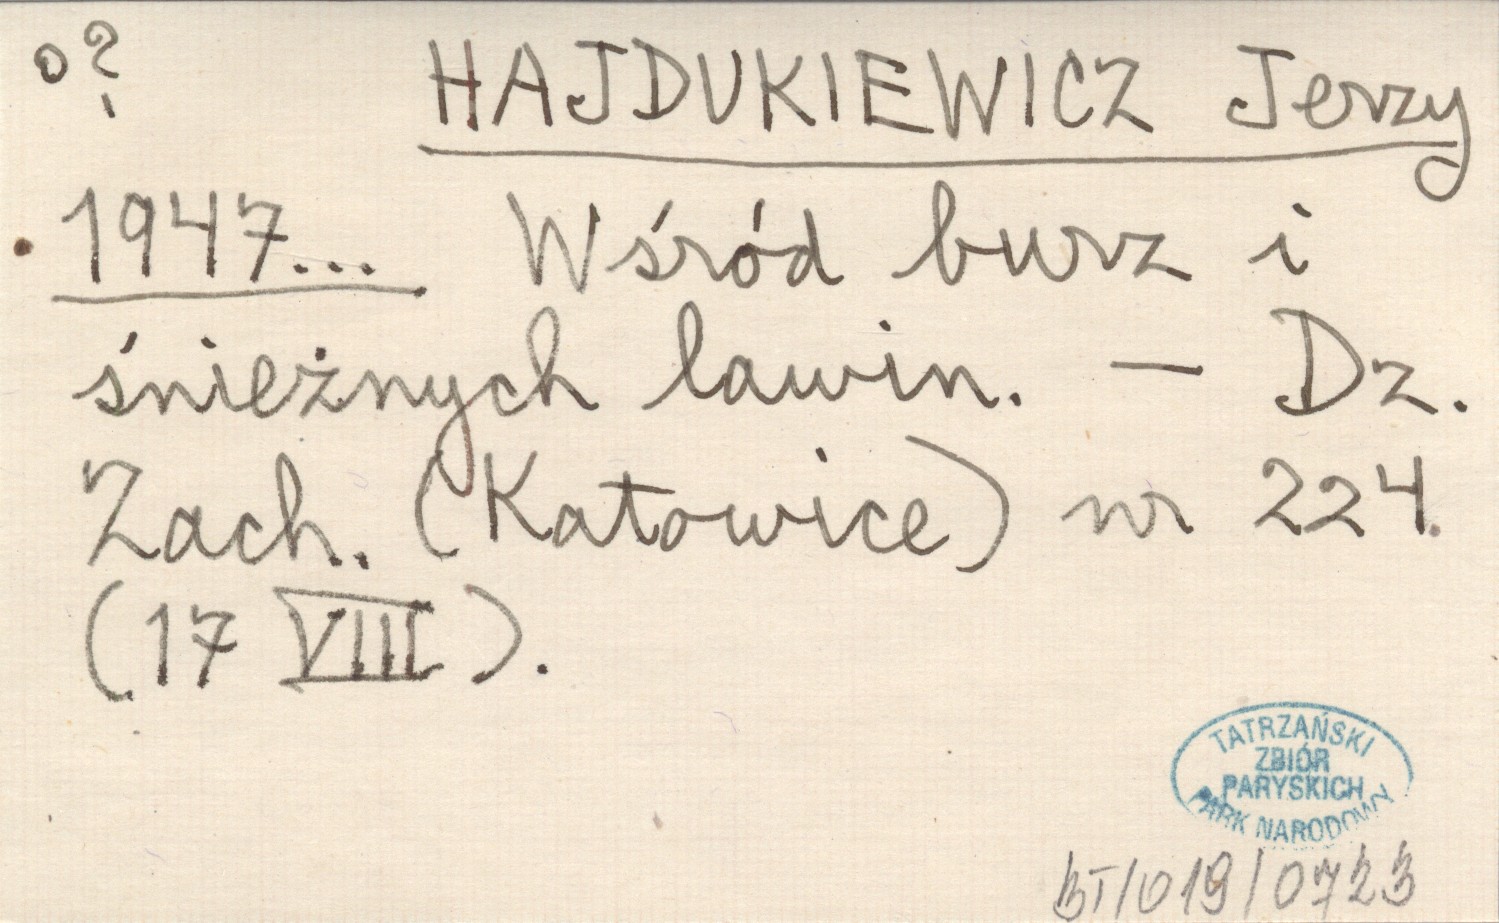 o?
HAJDUKIEWICZ Jerzy
1947... Wśród burz i
śnieżnych lawin. — Dz.
Zach. (Katowice) nr 224.
(17 VIII).
TATRZAŃSKI
ZBIÓR
PARYSKICH
PARK NARODOWY
BT/019/0723